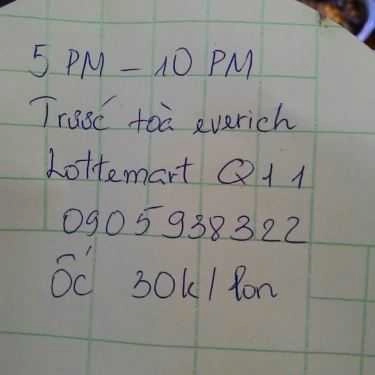 5 PM - 10 PM
Trước toà everich
Lottemart Q11
0905938322
Ốc 30k/lon